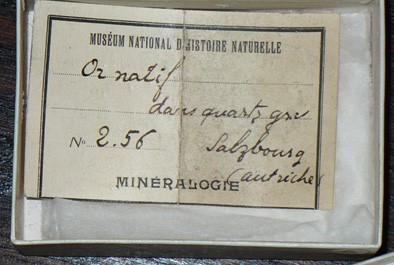 MUSÉUM NATIONAL D'HISTOIRE NATURELLE
Or natif
dans quartz gris
N° 2.56 Salzbourg
(autriche)
MINÉRALOGIE